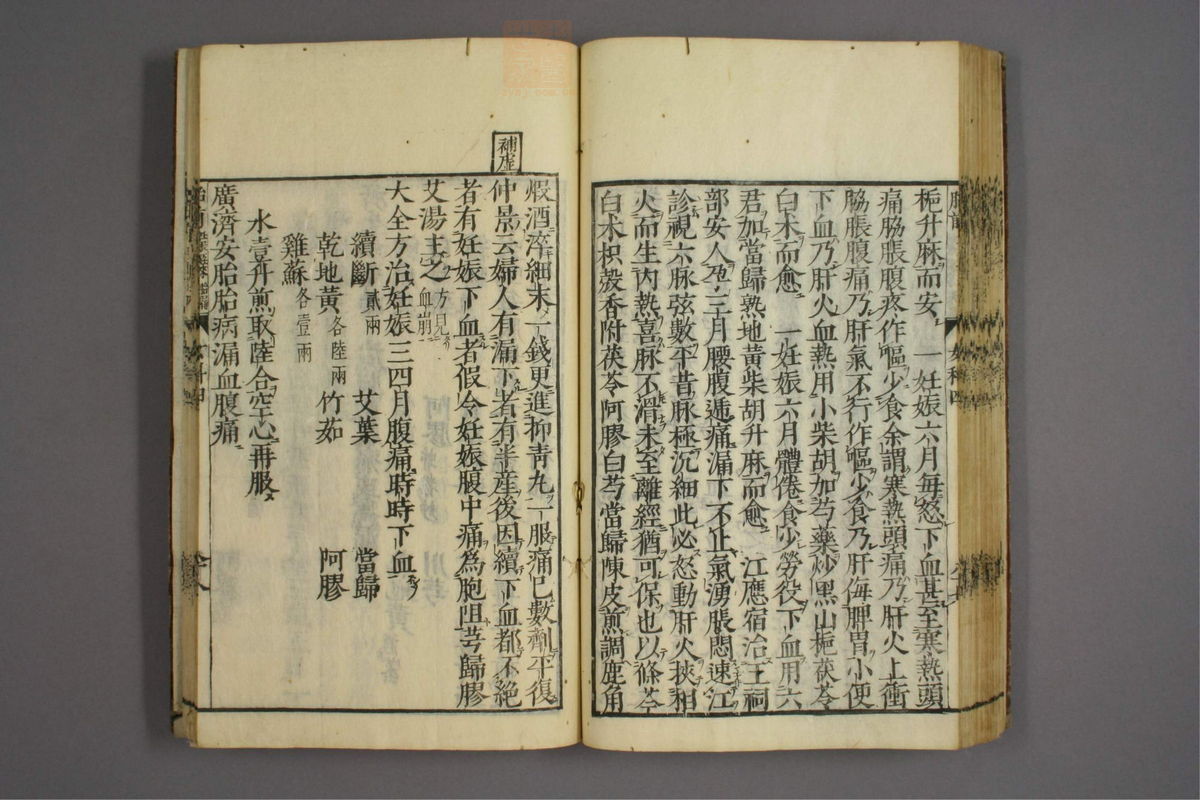 梔升麻而安 一妊娠六月每怒下血甚至寒熱頭
痛脇脹腹疼作嘔少食余謂寒熱頭痛乃肝火上衝
脇脹腹痛乃肝氣不行作嘔少食乃肝侮脾胃小便
下血乃肝火血熱用小柴胡加芍藥炒黑山梔茯苓
白朮而愈 一妊娠六月體倦食少勞役下血用六
君加當歸熟地黃柴胡升麻而愈 江應宿治王祠
部安人孕三月腰腹遞痛漏下不止氣湧脹悶速江
診視六脉弦數平昔脉極沉細此必怒動肝火挾相
火而生內熱喜脉不滑未至離經猶可保也以條芩
白朮枳殼香附茯苓阿膠白芍當歸陳皮煎調鹿角
補虛
煅酒淬細末一錢更進抑青丸一服痛已數劑平復
仲景云婦人有漏下者有半產後因續下血都不絕
者有妊娠下血者假令妊娠腹中痛為胞阻芎歸膠
艾湯主之 方見血崩
大全方治妊娠三四月腹痛時時下血
續斷 貳兩 艾葉 當歸
乾地黃 各陸兩 竹茹 阿膠
雞蘇 各壹兩
水壹升煎取陸合空心再服
廣濟安胎胎病漏血腹痛